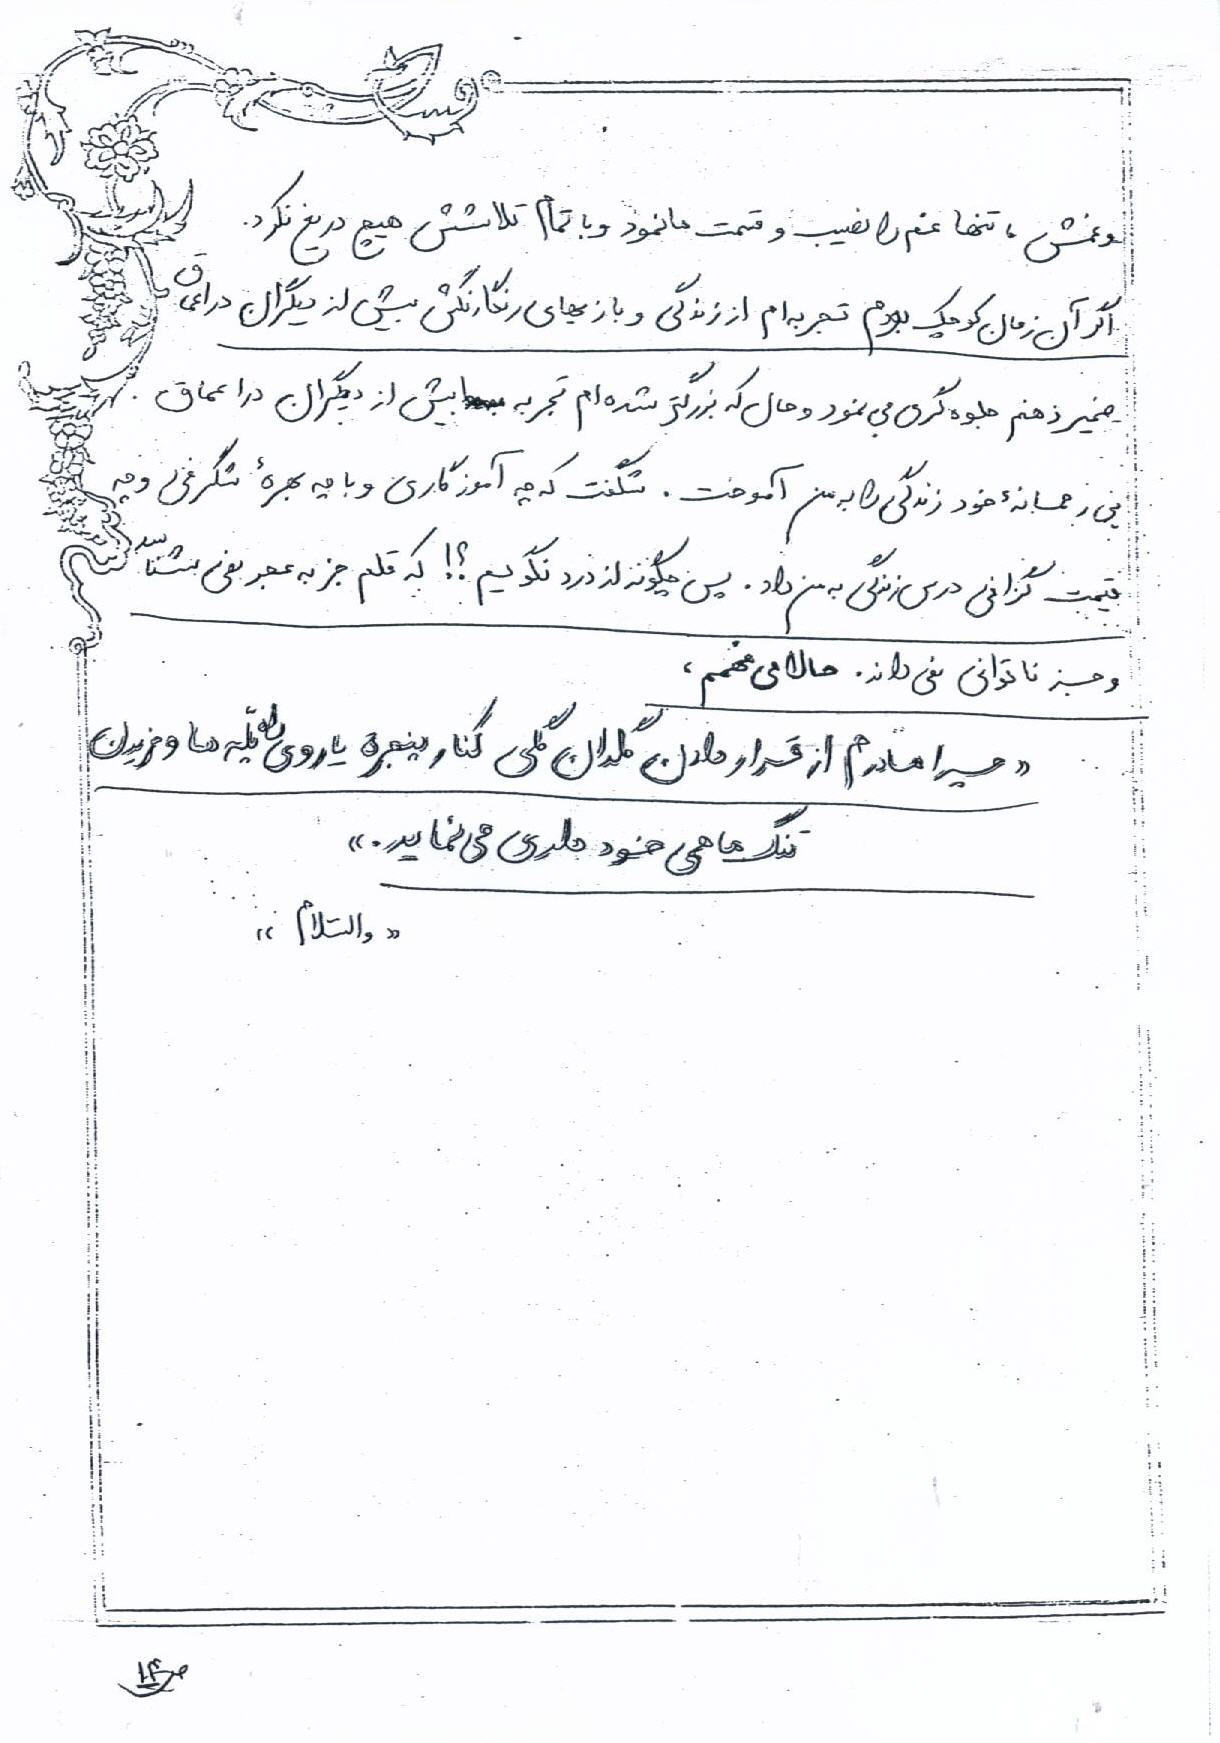 و غمش ، تنها غم را نصیب و قسمت ما نمود و با تمام تلاشش هیچ دریغ نکرد.
اگر آن زمان کوچک بودم تجربه ام از زندگی و بازیهای رنگارنگش بیش از دیگران در اعماق
ضمیر ذهنم جلوه گری می نمود و حال که بزرگتر شده ام تجربه بیش از دیگران در اعماق .
خود زندگی را به من آموخت . شگفت که چه آموزگاری و با چه بهرهٔ شگرفی و چه
قیمت گزافی درس زندگی به من داد . پس چگونه از درد نگویم ؟! که قلم جز به عجز نمی شناسد
و جز ناتوانی نمی داند . حالا می فهمم ،
« چرا مادرم از قرار دادن گلدان گلی کنار پنجره یا روی پله ها و خریدن
تنگ ماهی خود داری می نماید . »
« والسّلام »
ص ۱۴